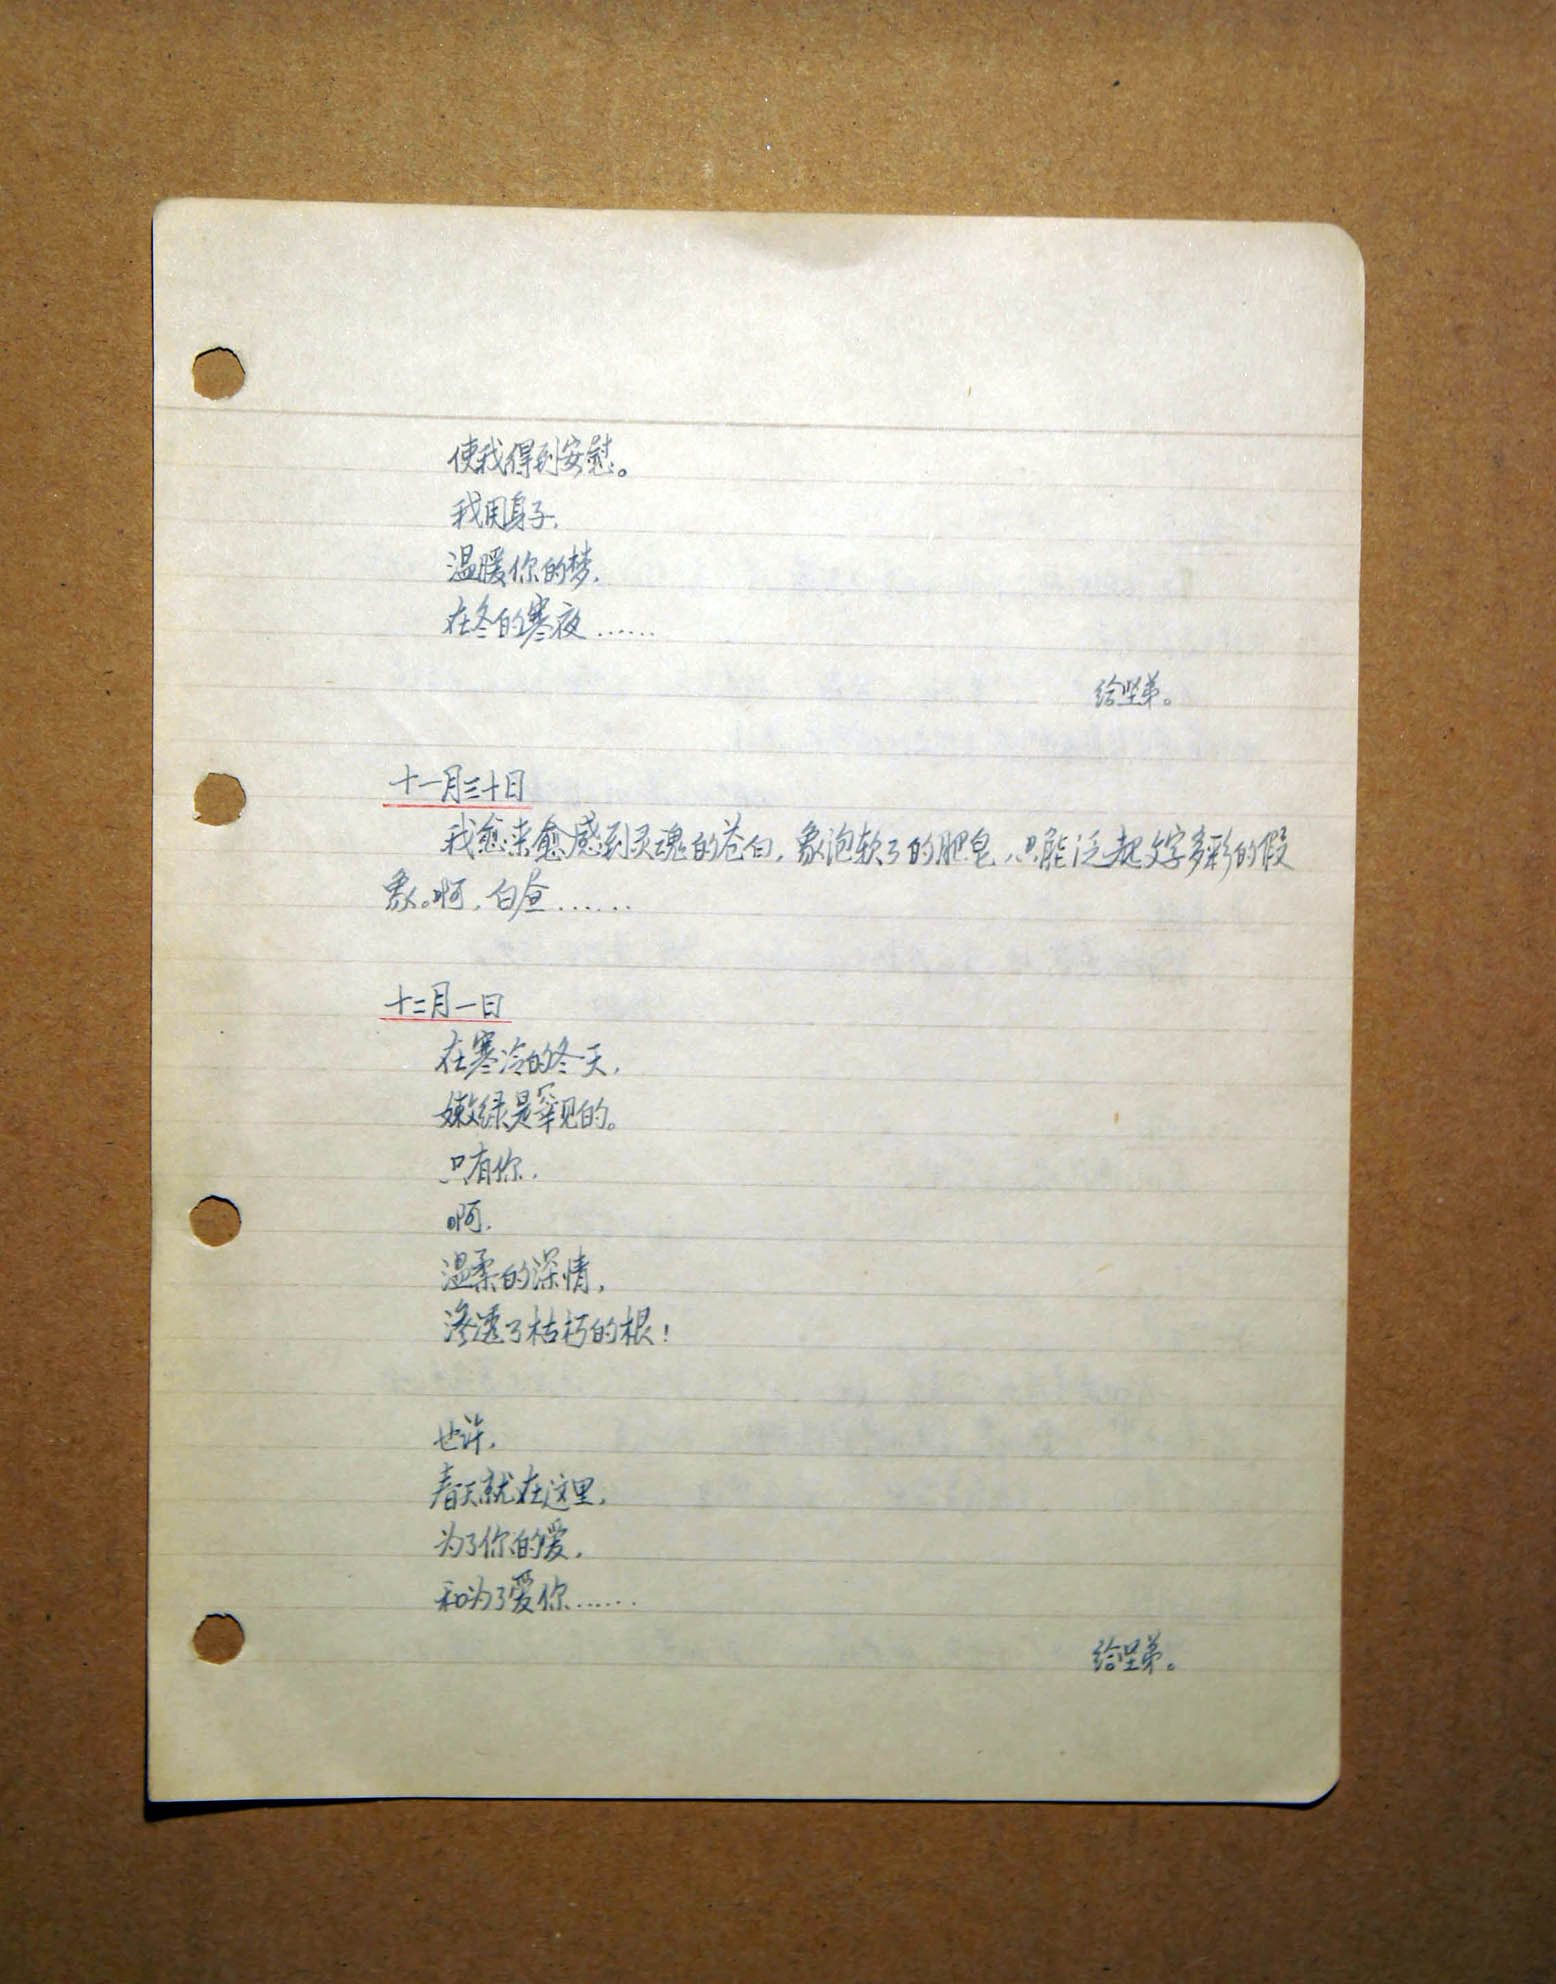 使我得到安慰。
我用身子，
温暖你的梦，
在冬的寒夜……
给坚弟。
十一月三十日
我愈来愈感到灵魂的苍白，象泡软了的肥皂，只能泛起文字多彩的假
象。啊，白昼……
十二月一日
在寒冷的冬天，
嫩绿是罕见的。
只有你，
啊，
温柔的深情，
渗透了枯朽的根！
也许，
春天就在这里，
为了你的爱，
和为了爱你……
给坚弟。